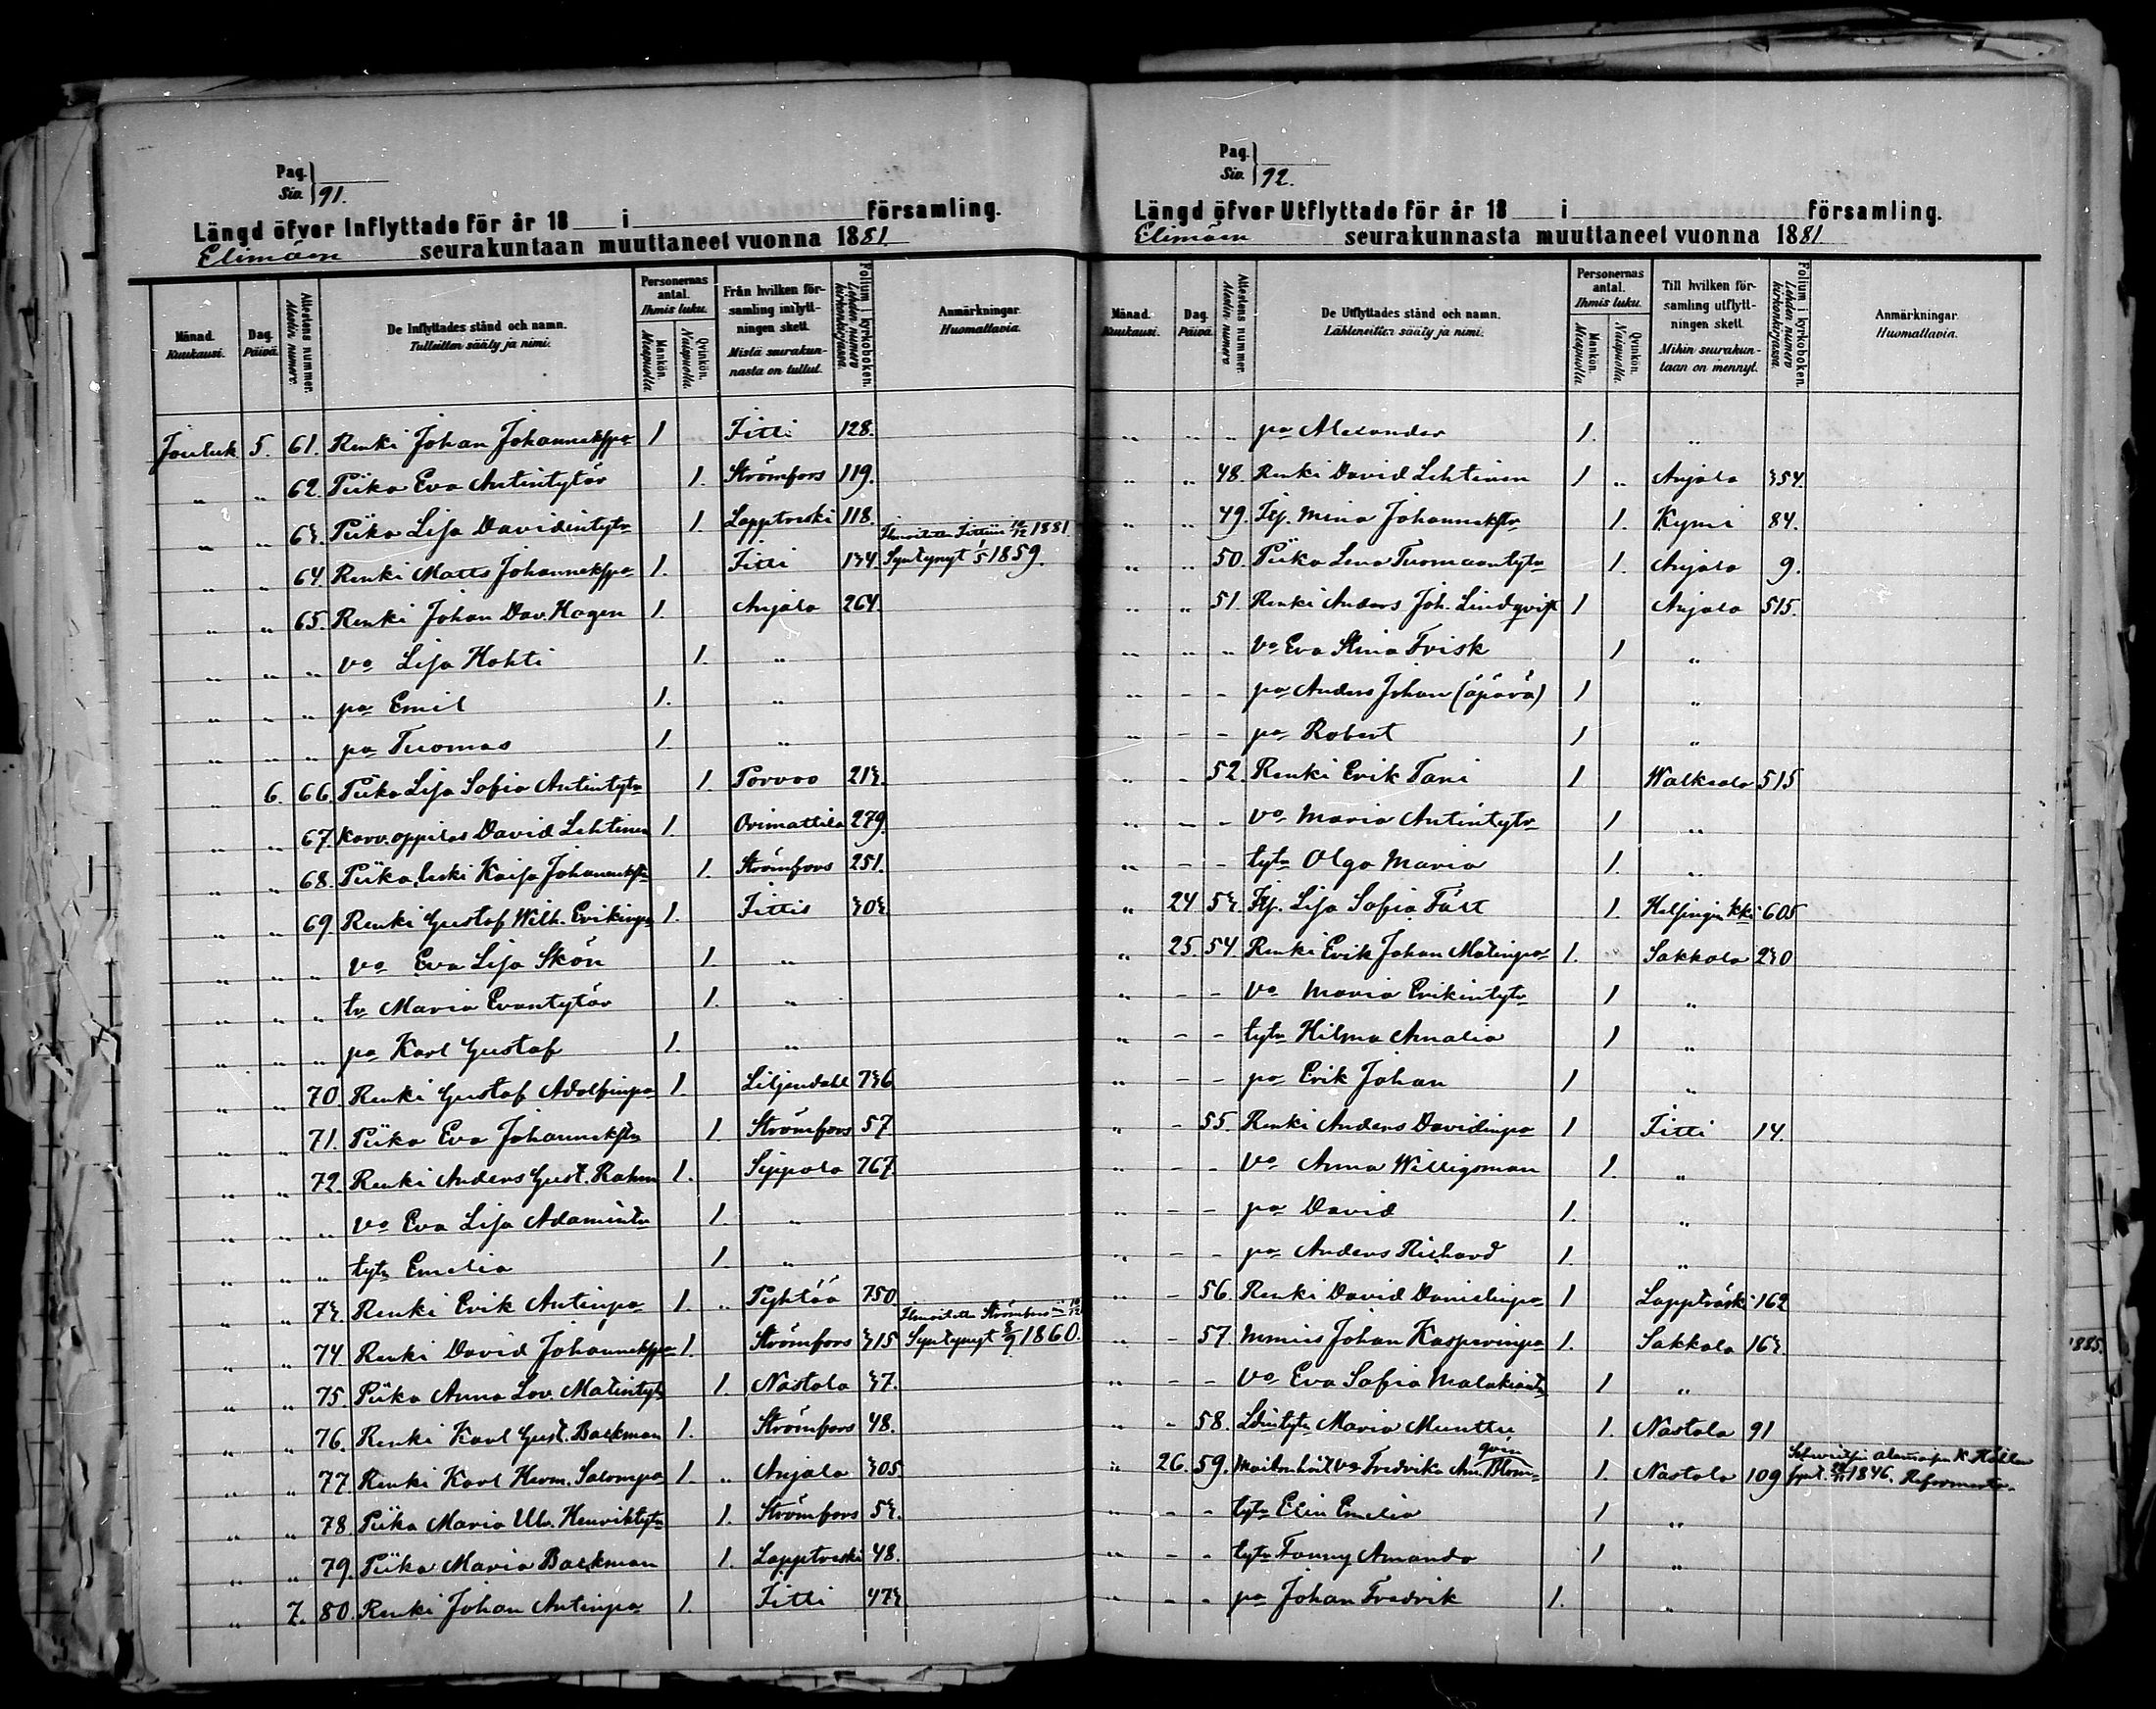 Pag.
Siv. 91.
Längd öfver Inflyttade för år 18 i församling.
Elimäen seurakuntaan muuttaneet vuonna 1881.
Månad. Kuukausi. Dag. Päivä. Attestens nummer. Alestin numero. De Inflyttades stånd och namn. Tulleitten sääty ja nimi. Personernas antal. Ihmis luku. Mankön. Miespuolia. Qvinkön. Naispuolia. Från hvilken församling inflyttningen skett. Mistä seurakunnasta on tullut. Folium i kyrkoboken. Lehden numero kirkonkirjassa. Anmärkningar. Huomattavia.
Jouluk 5. 61. Renki Johan Johanneksspa 1 Iitti 128.
" " 62. Piika Eva Antintytär 1. Strömfors 119.
" " 63. Piika Lisa Davidintytr 1. Lapptreski 118.
" " 64. Renki Matts Johanneksspa 1. Iitti 134. Ilmoitettu Iittiin 14/12 1881. Syntynyt 1/5 1859.
" " 65. Renki Johan Dav. Hagen 1. Anjala 264.
" " " vo Lisa Kohti 1. "
" " " pa Emil 1. "
" " " pa Tuomas 1. "
" 6. 66. Piika Lisa Sofia Antintytr 1. Porvoo 213.
" " 67. Karv. oppilas David Lehtinen 1. Orimattila 279.
" " 68. Piika, leski Kaisa Johannekstr 1. Strömfors 251.
" " 69. Renki Gustaf Wilh. Erikinpa 1. Iittis 303.
" " " vo Eva Lisa Skön 1. "
" " " tr Maria Evantytär 1. "
" " " pa Karl Gustaf 1. "
" " 70. Renki Gustaf Adolfinpa 1. Liljendahl 736
" " 71. Piika Eva Johannekstr 1. Strömfors 57.
" " 72. Renki Anders Gust. Rahm 1. Sippola 767.
" " " vo Eva Lisa Adamintr 1. "
" " " tytr Emelia 1. "
" " 73. Renki Erik Antinpa 1. " Pyhtää 750.
" " 74. Renki David Johanneksspa 1. Strömfors 315 Ilmoitettu Strömforsiin 14/12 Syntynyt 8/9 1860.
" " 75. Piika Anna Lov. Matintytr 1. Nastola 37.
" " 76. Renki Karl Gust. Backman 1. Strömfors 48.
" " 77. Renki Karl Herm. Salompa 1. " Anjala 305
" " 78. Piika Maria Ulr. Henriktytr 1. Strömfors 53.
" " 79. Piika Maria Backman 1. Lapptreski 48.
" 7. 80. Renki Johan Antinpa 1. Iitti 473
Pag.
Siv. 92.
Längd öfver Utflyttade för år 18 i församling.
Elimäen seurakunnasta muuttaneet vuonna 1881
Månad. Kuukausi. Dag. Päivä. Attestens nummer. Alestin numero De Utflyttades stånd och namn. Lähteneitten sääty ja nimi. Personernas antal. Ihmis luku. Mankön. Miespuolia. Qvinkön. Naispuolia. Till hvilken församling utflyttningen skett. Mihin seurakuntaan on mennyt. Folium i kyrkoboken. Lehden numero kirkonkirjassa. Anmärkningar. Huomattavia.
" " " pa Alexander 1. "
" " 48. Renki David Lehtinen 1 " Anjala 354.
" " 49. Itj. Mina Johannekstr 1. Kymi 84.
" " 50. Piika Lena Tuomaantytr 1. Anjala 9.
" " 51. Renki Anders Joh. Lindqvist 1 Anjala 515.
" " " vo Eva Stina Frisk 1 "
" - - pa Anders Johan (äpärä) 1 "
" - - pa Robert 1 "
" - 52. Renki Erik Tani 1 Walkeala 515
" - - vo Maria Antintytr 1 "
" - - tytr Olga Maria 1. "
" 24 53. Itj. Lisa Sofia Färt 1. Helsingin kki 605
" 25. 54. Renki Erik Johan Matinpa 1. Sakkola 230
" - - vo Maria Erikintytr 1 "
" - - tytr Hilma Amalia 1 "
" - - pa Erik Johan 1 "
" - 55. Renki Anders Davidinpa 1 Iitti 14.
" - - vo Anna Willigsman 1. "
" - - pa David 1. "
" - - pa Anders Richard 1. "
" - 56. Renki David Danielinpa 1 Lappträski 162
" - 57. Mmies Johan Kasperinpa 1. Sakkola 163.
" - - vo Eva Sofia Malakiantr 1 "
" - 58. Ldintytr Maria Munttu 1. Nastola 91
" 26. 59. Maitonhoit. vo Fredrika Am. Blomqvin 1. Nastola 109 K. Höller synt. 24/11 1846. Reformerta.
" - - tytr Elin Emelia 1 "
" - - tytr Fanny Amanda 1 "
" - - pa Johan Fredrik 1. "
1885.